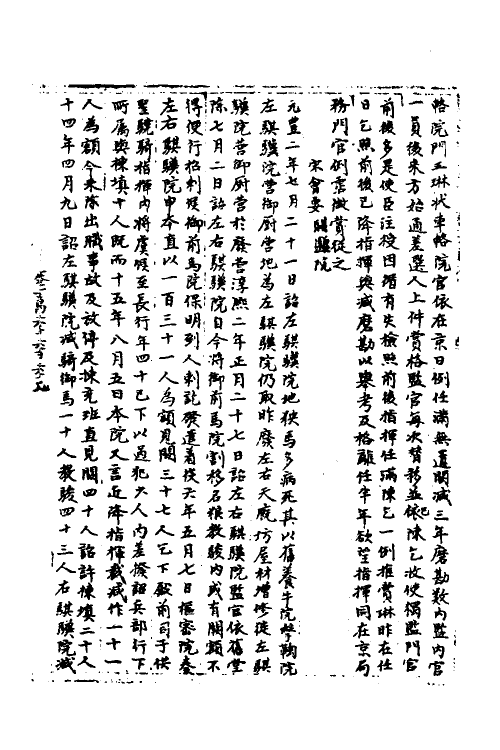 輅院門王琳狀車輅院官依在京日例任滿無遺闕減三年磨勘數內監內官
一員後來方始通差選人上件賞格監官每次替移並依陳乞放使獨監門官
前後多是使臣注授因循有失檢照前後指揮任滿陳乞一例推賞琳昨在任
日乞照前後已降指揮與減磨勘以舉考及格離任半年欲望指揮同在京局
務門官例霑激賞從之
宋會要 騏驥院
元豐二年七月二十一日詔左騏驥院地狹馬多病死其以舊養牛院鞠院
左騏驥院營御廚營地為左騏驥院仍取昨廢左右天廄坊屋材增修徙左騏
驥院營御廚營於廢營淳熙二年正月二十七日詔左右騏驥院監官依舊堂
除七月二日詔左右騏驥院自今將御前馬院割移名糧教駿內或有闕額不
得便行招刺候御前馬院保明到人刺訖發遣着役六年五月七日樞密院奏
左右騏驥院申本直以一百三十一人為額見闕三十七人乞下殿前司于供
聖驍騎指揮內將虞候至長行年四十已下以過犯六人內差撥詔兵部行下
所屬與揀填十人既而十五年八月五日本院又言近降指揮裁減作一十一
人為額今來除出職事故及放停及揀充班直見闕四十人詔許揀填二十人
十四年四月九日詔左騏驥院減騎御馬一十人教駿四十三人右騏驥院減